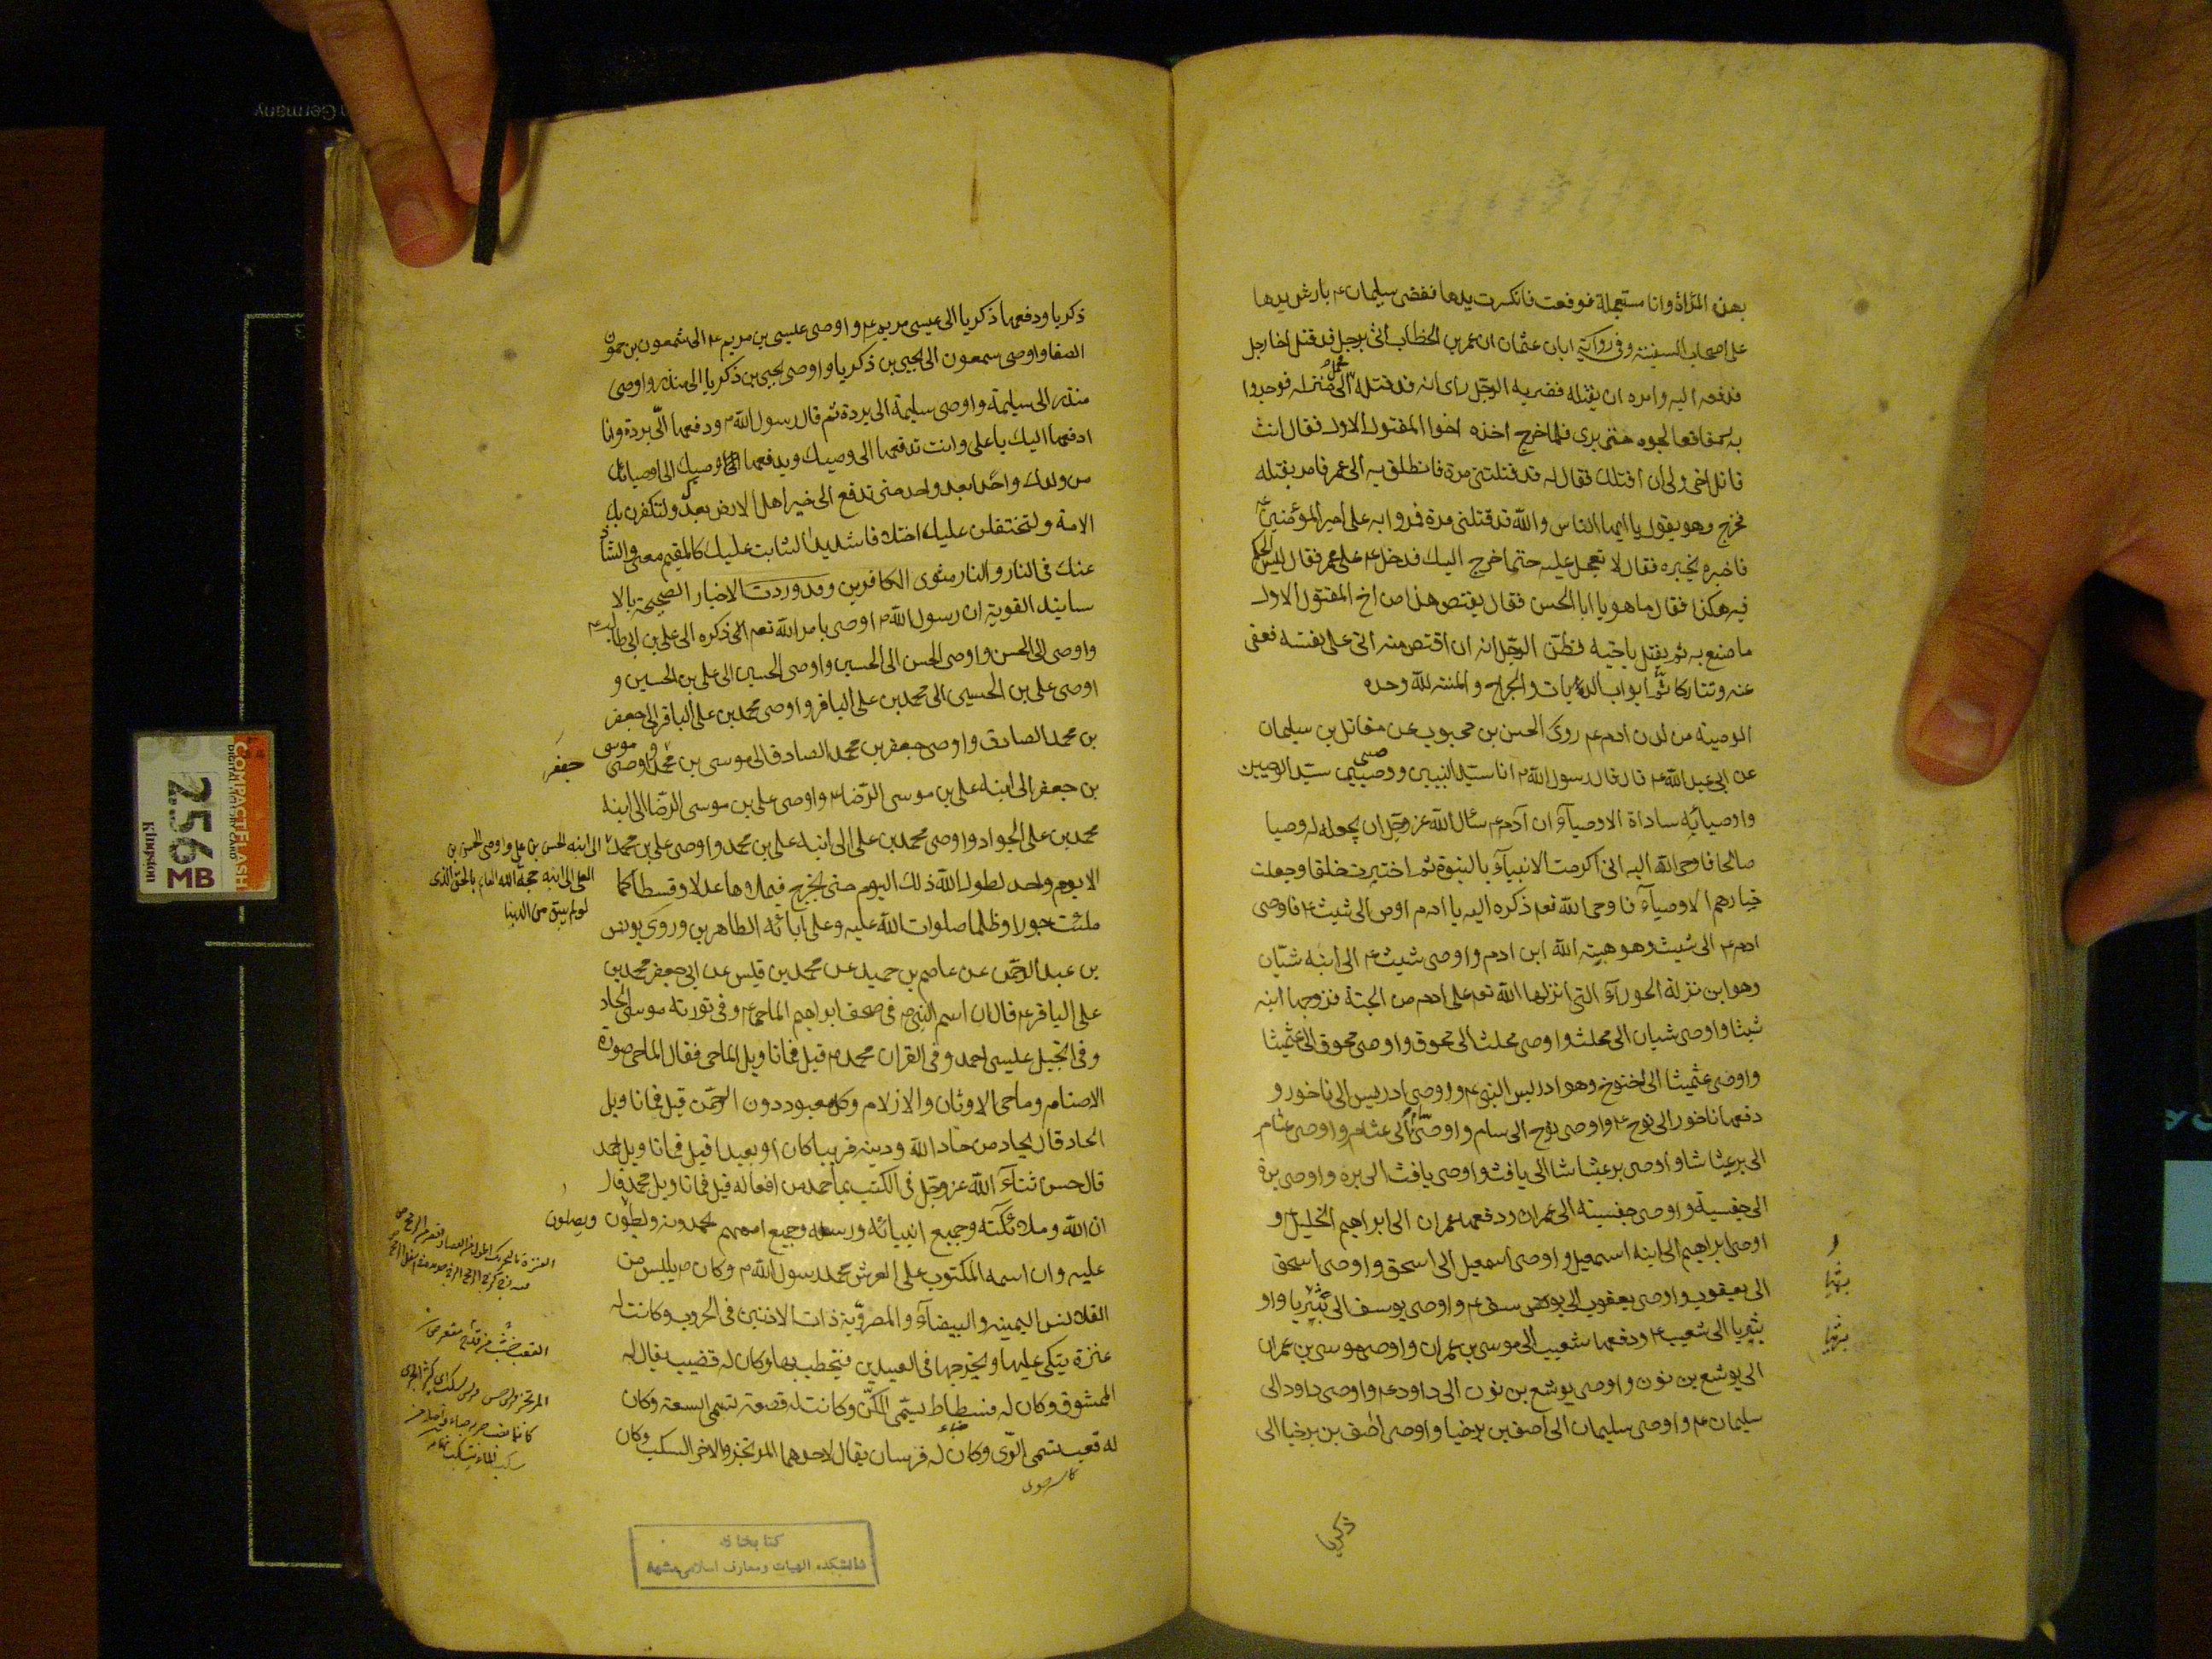 بهذه المرأة وانا مستعجلة فوقعت فانكسرت يدها فقضى سليمان ع بارش يدها
على اصحاب السفينة وفى رواية ابان عثمان ان عمر بن الخطاب اتى برجل قد قتل اخا رجل
فدفعه اليه وامره ان يقتله فضربه الرجل راى انه قد قتله فحمل الى منزله فوجدوا
به رمقا فعالجوه حتى برئ فلما خرج اخذه اخوا المقتول الاول فقال انت
قاتل اخى ولى ان اقتلك فقال له قد قتلتنى مرة فانطلق به الى عمر فامر بقتله
فخرج وهو يقول يا ايها الناس والله قد قتلنى مرة فمروا به على امير المؤمنين ع
فاخبره بخبره فقال لا تعجل عليه حتى اخرج اليك فدخل ع على عمر فقال ليس الحكم
فيه هكذا فقال ما هو يا ابا الحسن فقال يقتص هذا من اخ المقتول الاول
ما صنع به ثم يقتل باخيه فظن الرجل انه ان اقتص منه اتى على نفسه فعفى
عنه وتتاركا تم ابواب الديات والجراح والمنة لله وحده
الوصية من لدن ادم ع روى الحسن بن محبوب عن مقاتل بن سليمان
عن ابى عبد الله ع قال قال رسول الله ص انا سيد النبيين ووصيى سيد الوصيين
واوصيائه ساداة الاوصياء ان آدم ع سئال الله عز وجل ان يجعله له وصيا
صالحا فاوحى الله اليه انى اكرمت الانبياء بالنبوة ثم اختبرت خلقا وجعلت
خيارهم الاوصياء فاوحى الله تعم ذكره اليه يا ادم اوص الى شيث ع فاوصى
ادم ع الى شيث وهو هبة الله ابن ادم واوصى شيث ع الى ابنه شبان
وهو ابن نزلة الحوراء التى انزلها الله تعم على ادم من الجنة فزوجها ابنه
شيثا واوصى شبان الى محلث واوصى محلث الى محوق واوصى محوق الى عثميثا
واوصى عثميثا الى اخنوخ وهو ادريس النبى ع واوصى ادريس الى ناخور و
دفعها ناخور الى نوح ع واوصى نوح الى سام واوصى سام الى عثام واوصى عثام
الى برعيثاشا واوصى برعيثاشا الى يافث واوصى يافث الى بره واوصى برة
الى جفسية واوصى جفسية الى عمران ودفعها عمران الى ابراهيم الخليل و
اوصى ابراهيم الى ابنه اسمعيل واوصى اسمعيل الى اسحق واوصى اسحق
الى يعقوب واوصى يعقوب الى يوسف ع واوصى يوسف الى بثريا واو
بثريا الى شعيب ع ودفعها شعيب الى موسى بن عمران واوصى موسى بن عمران
الى يوشع بن نون واوصى يوشع بن نون الى داود ع واوصى داود الى
سليمان ع واوصى سليمان الى آصف بن برخيا واوصى اصف بن برخيا الى
ذكريا
ذكريا ودفعها ذكريا الى عيسى مريم ع واوصى عيسى بن مريم ع الى شمعون بن حمون
الصفا واوصى سمعون الى يحيى بن ذكريا واوصى يحيى بن ذكريا الى منذر واوصى
منذر الى سليمة واوصى سليمة الى بردة ثم قال رسول الله ص ودفعها الىّ بردة وانا
ادفعها اليك يا على وانت تدفعها الى وصيك ويدفعها وصيك الى اوصيائك
من ولدك واحدا بعد واحد حتى تدفع الى خير اهل الارض بعدك ولتكفرن بك
الامة ولتختلفن عليك اختلافا شديدا الثابت عليك كالمقيم معى والشاذ
عنك فى النار والنار مثوى الكافرين وقد وردت الاخبار الصحيحة بالا
سانيد القوية ان رسول الله ص اوصى بامر الله تعم ذكره الى على بن ابى طالب ع
واوصى الى الحسن واوصى الحسن الى الحسين واوصى الحسين الى على بن الحسين و
اوصى على بن الحسين الى محمد بن على الباقر واوصى محمد بن على الباقر الى جعفر
بن محمد الصادق واوصى جعفر بن محمد الصادق الى موسى بن جعفر واوصى موسى
بن جعفر الى ابنه على بن موسى الرضا ع واوصى على بن موسى الرضا الى ابنه
محمد بن على الجواد واوصى محمد بن على الى ابنه على بن محمد واوصى على بن محمد
الى ابنه الحسن بن على واوصى الحسن بن
العلى الى ابنه حجة الله القائم بالحق الذى
لو لم يبق من الدنيا
الا يوم واحد لطول الله ذلك اليوم حتى يخرج فيملاءها عدلا وقسطا كما
ملئت جورا وظلما صلوات الله عليه وعلى آبائه الطاهرين وروى يونس
بن عبد الرحمن عن عاصم بن حميد عن محمد بن قيس عن ابى جعفر محمد بن
على الباقر ع قال ان اسم النبى ص فى صحف ابراهيم الماحى ع وفى تورية موسى الحاد
وفى انجيل عيسى احمد وفى القران محمد ص قيل فما تاويل الماحى فقال الماحى صورة
الاصنام وماحى الاوثان والازلام وكل معبود دون الرحمن قيل فما تاويل
الحاد قال يحاد من حاد الله ودينه قريبا كان او بعيدا قيل فما تاويل احمد
قال حسن ثناء الله عز وجل فى الكتب بما حمد من افعاله قيل فما تاويل محمد قال
ان الله وملائكته وجميع انبيائه ورسله وجميع اممهم يحمدونه ويصلون
عليه وان اسمه المكتوب على العرش محمد رسول الله ص وكان ص يلبس من
القلانس اليمينه والبيضاء والمضربة ذات الاذنين فى الحروب وكانت له
عنزة يتكى عليها ويخرجها فى العيدين فيخطب بها وكان له قضيب يقال له
الممشوق وكان له فسطاط يسمى الكن وكانت له قصعة تسمى السعة وكان
له قعب يسمى الرّى وكان له فرسان يقال لاحدهما المرتجز والاخر السكب وكان
كتابخانه
دانشكده الهيات ومعارف اسلامى مشهد
COMPACTFLASH
256
MB
Kingston
Germany